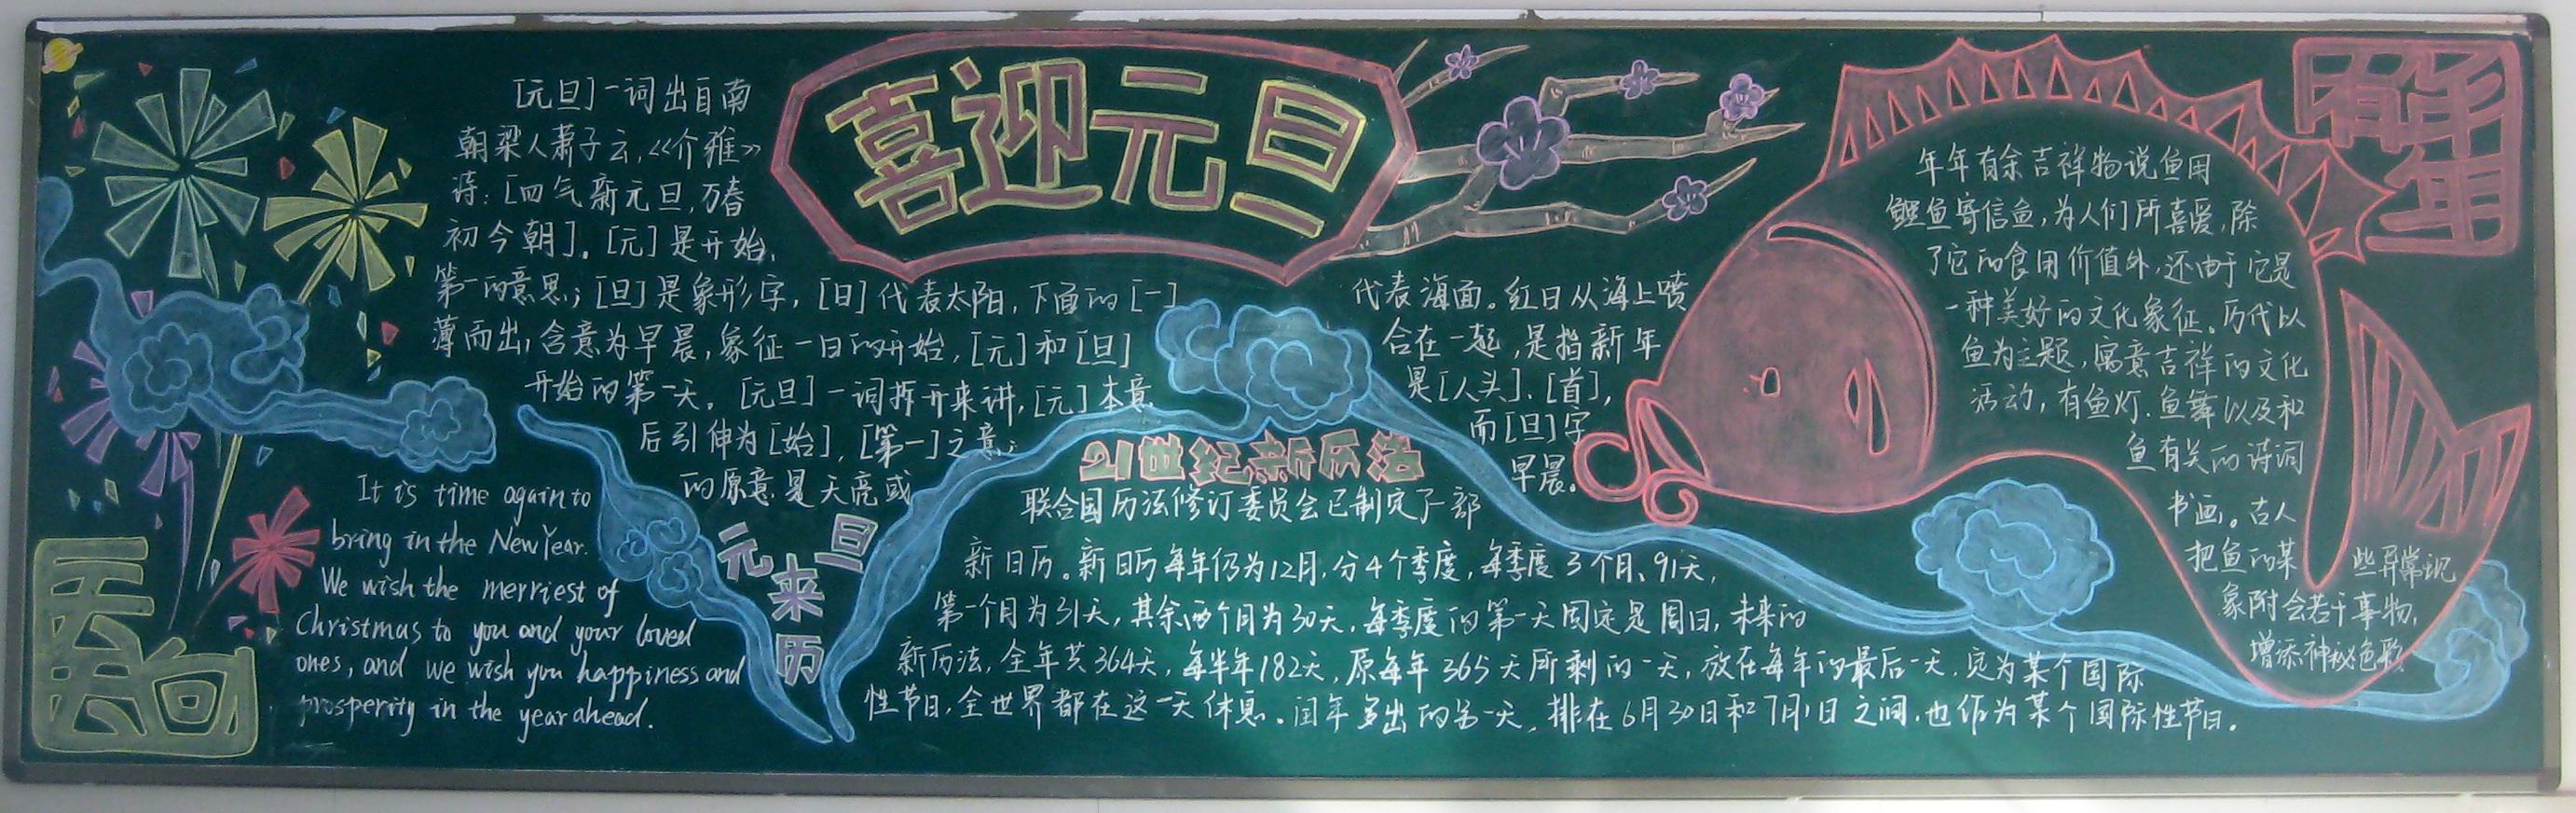 喜迎元旦
[元旦]一词出自南
朝梁人萧子云,《介雅》
诗:[四气新元旦,万春
初今朝]。[元]是开始,
第一的意思;[旦]是象形字,[日]代表太阳,下面的[一]代表海面。红日从海上喷
薄而出,含意为早晨,象征一日的开始,[元]和[旦]合在一起,是指新年
开始的第一天。[元旦]一词拆开来讲,[元]本意是[人头]、[首],
后引伸为[始],[第一]之意;而[旦]字
的原意是天亮或早晨。
元旦
来
历
It is time again to
bring in the New Year.
We wish the merriest of
Christmas to you and your loved
ones, and we wish you happiness and
prosperity in the year ahead.
21世纪新历法
联合国历法修订委员会已制定了一部
新日历。新日历每年仍为12月,分4个季度,每季度3个月、91天,
第一个月为31天,其余两个月为30天,每季度的第一天固定是周日,未来的
新历法,全年共364天,每半年182天,原每年365天所剩的一天,放在每年的最后一天,定为某个国际
性节日,全世界都在这一天休息。闰年多出的另一天,排在6月30日和7月1日之间,也作为某个国际性节日。
年年有余吉祥物说鱼用
鲤鱼寄信鱼,为人们所喜爱,除
了它的食用价值外,还由于它是
一种美好的文化象征。历代以
鱼为主题,寓意吉祥的文化
活动,有鱼灯、鱼舞以及和
鱼有关的诗词
书画。古人
把鱼的某些异常现
象附会若干事物,
增添神秘色彩